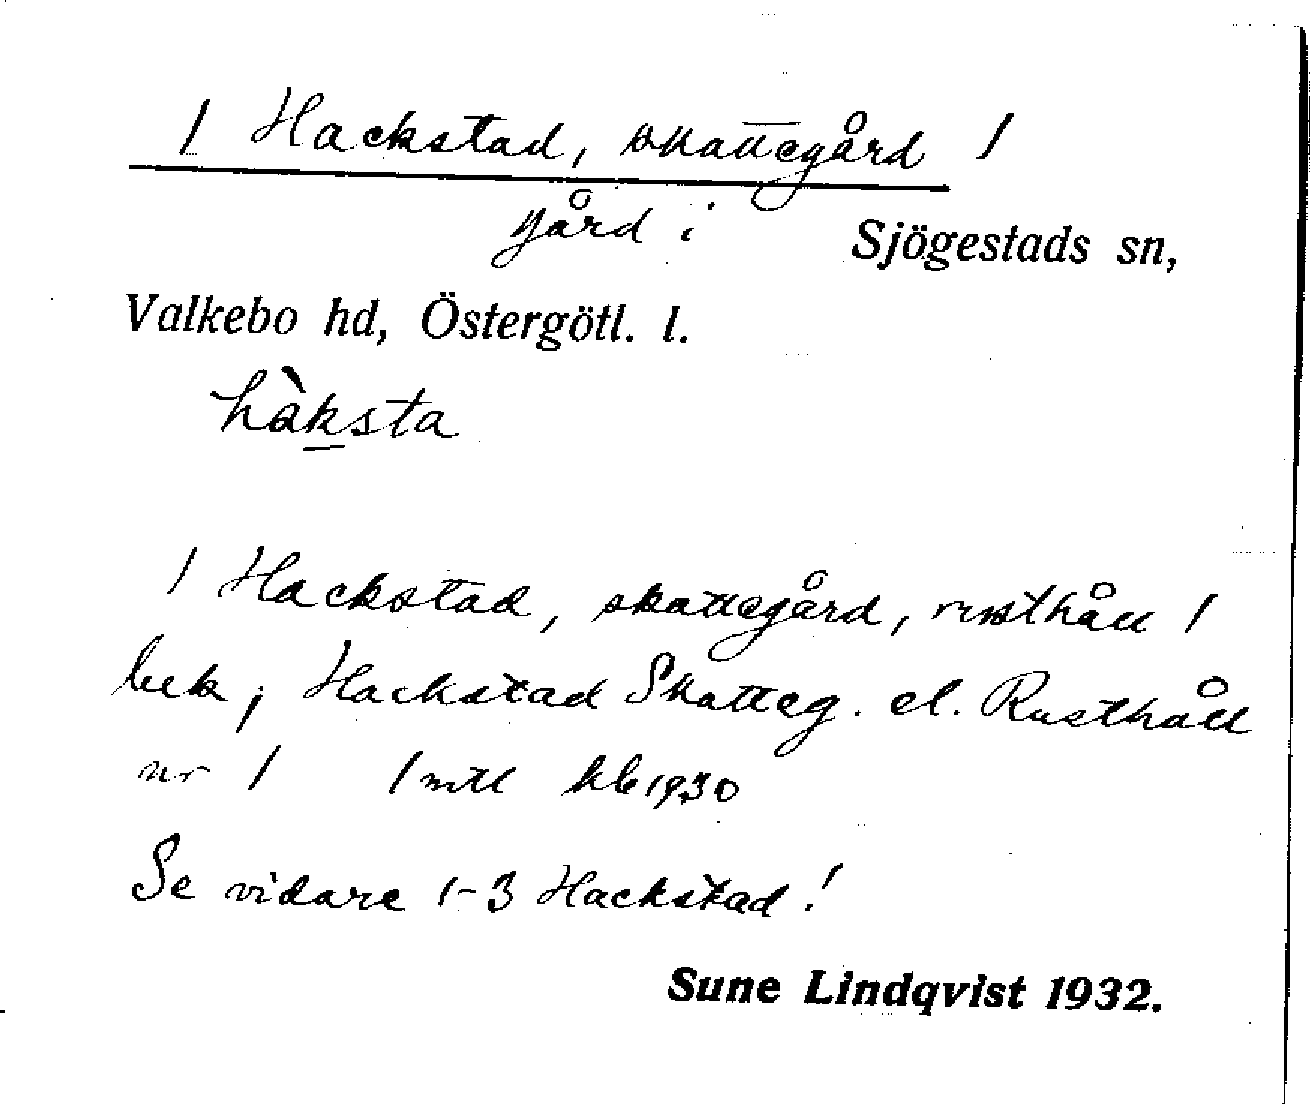 1 Hackstad, skattegård 1
gård i Sjögestads sn,
Valkebo hd, Östergötl. l.
hàksta
1 Hackstad, skattegård, rusthåll 1
bek; Hackstad Skatteg. el. Rusthåll
nr 1 1 mtl kb 1930
Se vidare 1-3 Hackstad!
Sune Lindqvist 1932.